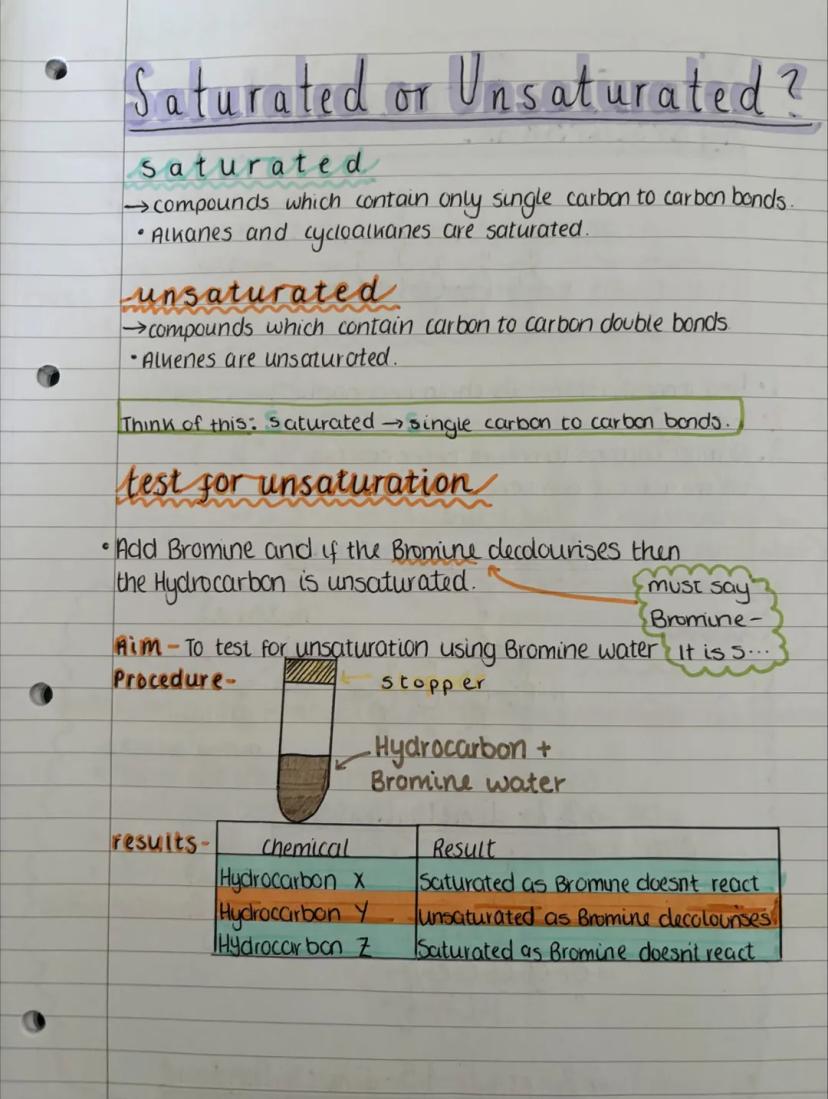 Saturated or Unsaturated?
saturated
→ compounds which contain only single carbon to carbon bonds.
• Alkanes and cycloalkanes are saturated.
unsaturated
→ compounds which contain carbon to carbon double bonds
• Alkenes are unsaturated.
Think of this: Saturated → single carbon to carbon bonds.
test for unsaturation
• Add Bromine and if the Bromine decolourises then
the Hydrocarbon is unsaturated.
must say
Bromine -
It is 5...
Aim - To test for unsaturation using Bromine water
Procedure -
stopper
Hydrocarbon +
Bromine water
results -
chemical Result
Hydrocarbon X Saturated as Bromine doesnt react
Hydrocarbon Y Unsaturated as Bromine decolourises
Hydrocarbon Z Saturated as Bromine doesn't react